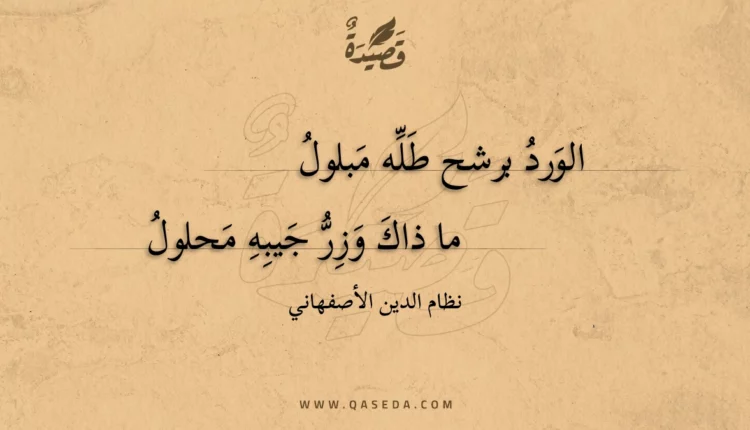 قَصِيْدَةٌ
الوَردُ برشح طَلِّه مَبلولُ
ما ذاكَ وَزِرُّ جَيبِهِ مَحلولُ
نظام الدين الأصفهاني
WWW.QASEDA.COM